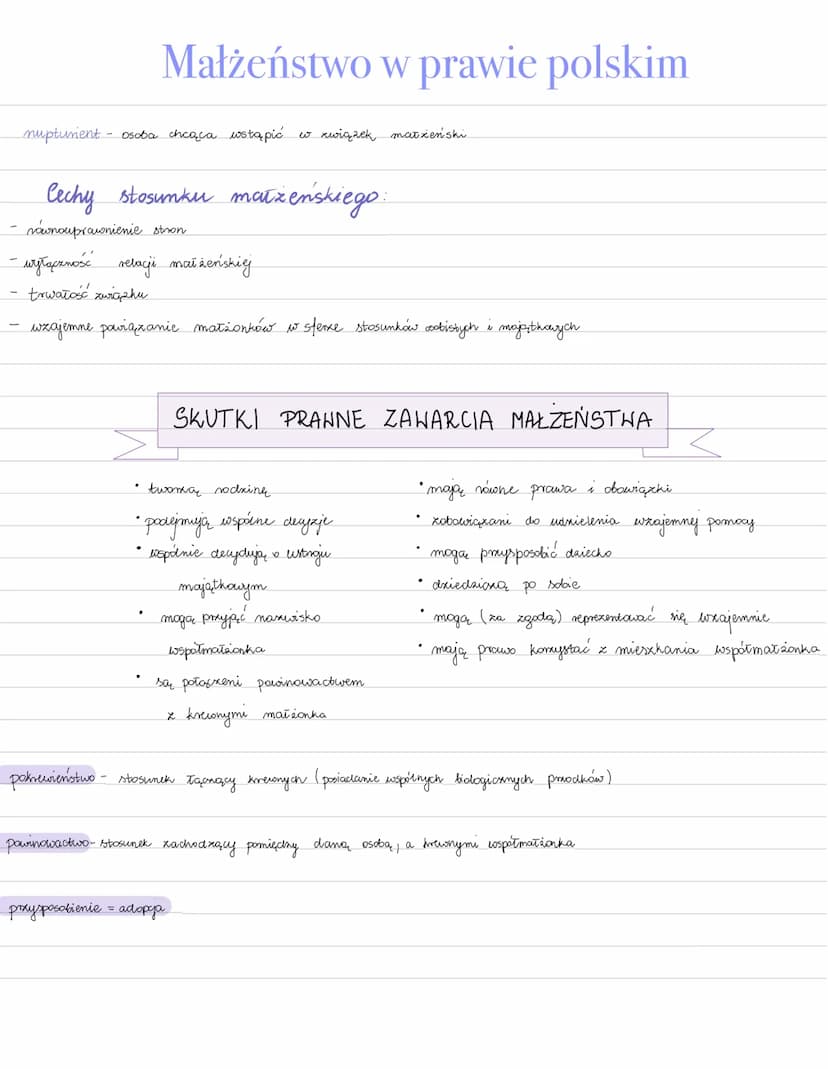 Małżeństwo w prawie polskim
nupturient - osoba chcąca wstąpić w związek małżeński
Cechy stosunku małżeńskiego:
- równouprawnienie stron
- wyłączność relacji małżeńskiej
- trwałość związku
- wzajemne powiązanie małżonków w sferze stosunków osobistych i majątkowych
SKUTKI PRAWNE ZAWARCIA MAŁŻEŃSTWA
• tworzą rodzinę
• podejmują wspólne decyzje
• wspólnie decydują o ustroju
majątkowym
• mogą przyjąć nazwisko
współmałżonka
• są połączeni powinowactwem
z krewnymi małżonka
• mają równe prawa i obowiązki
• zobowiązani do udzielenia wzajemnej pomocy
• mogą przysposobić dziecko
• dziedziczą po sobie
• mogą (za zgodą) reprezentować się wzajemnie
• mają prawo korzystać z mieszkania współmałżonka
pokrewieństwo - stosunek łączący krewnych (posiadanie wspólnych biologicznych przodków)
powinowactwo - stosunek zachodzący pomiędzy daną osobą, a krewnymi współmałżonka
przysposobienie = adopcja